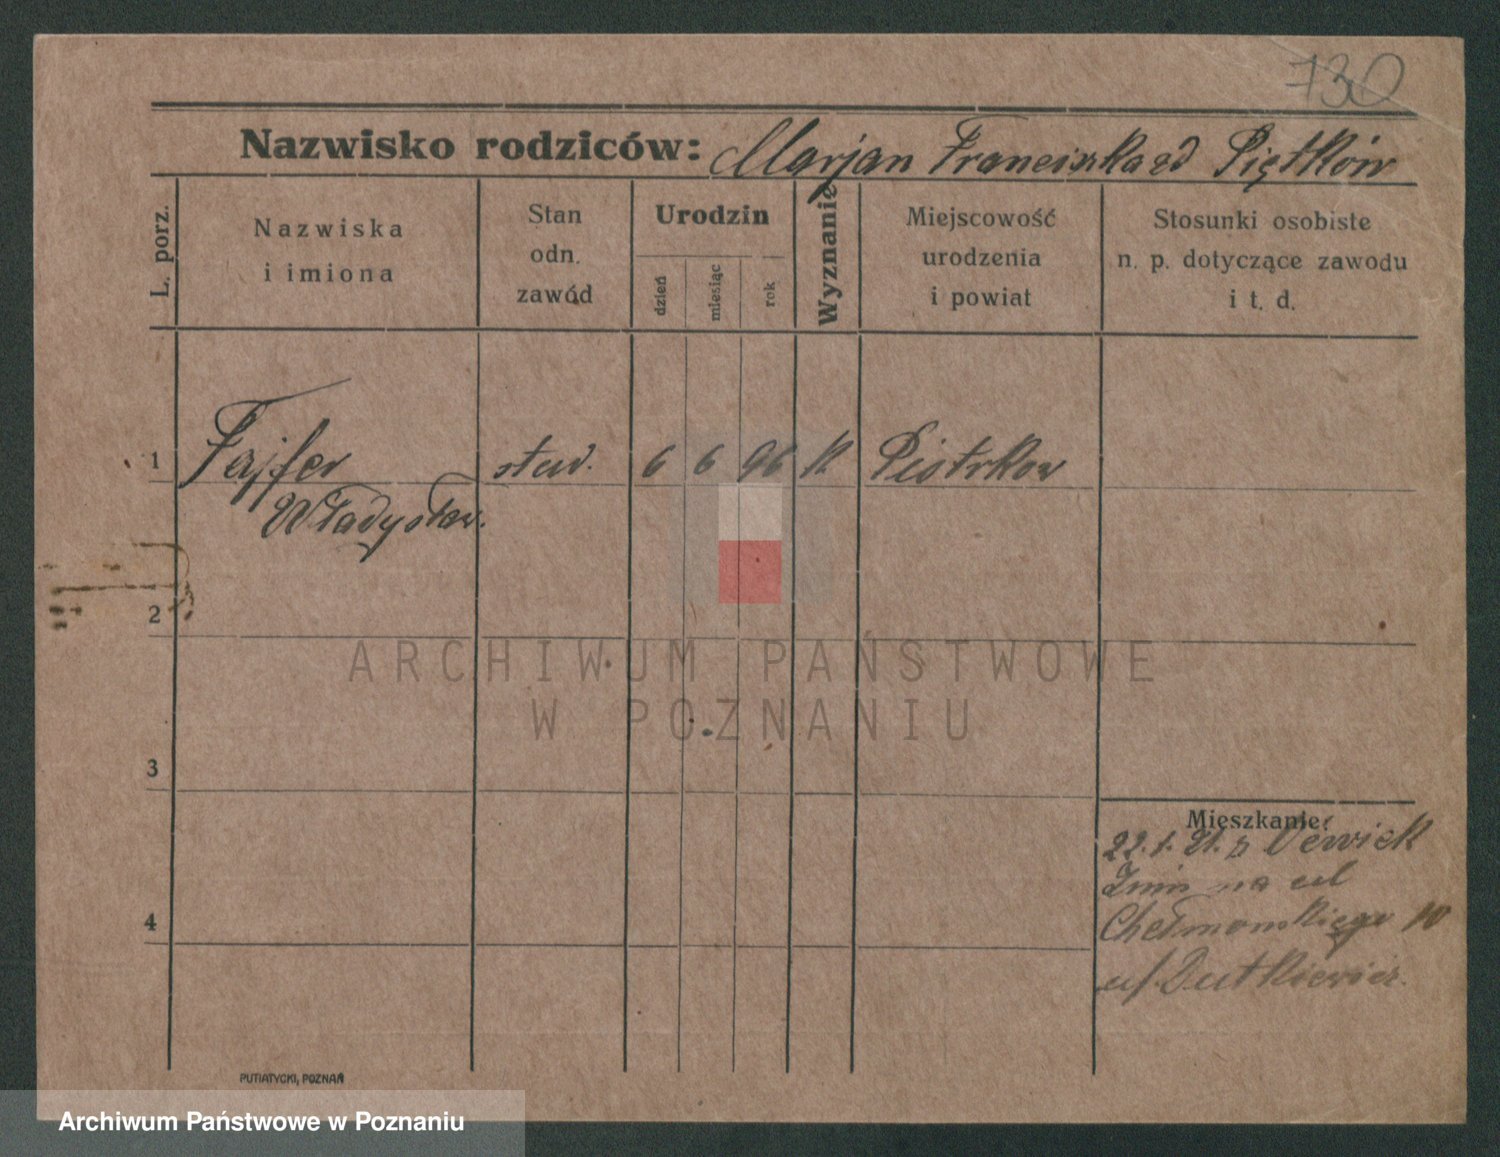 730
Nazwisko rodziców: Marjan Franciszka zd Piętków
L. porz.
Nazwiska
i imiona
Stan
odn.
zawód
Urodzin
dzień
miesiąc
rok
Wyznanie
Miejscowość
urodzenia
i powiat
Stosunki osobiste
n. p. dotyczące zawodu
i t. d.
1 Fajfer stud. 6 6 96 k Piotrkow
Władysław.
2
ARCHIWUM PAŃSTWOWE
W POZNANIU
3
Mieszkanie:
22.1.21. z
na ul
4
Chełmońskiego 10
u/. Dutkiewicz.
PUTIATYCKI, POZNAŃ
Archiwum Państwowe w Poznaniu